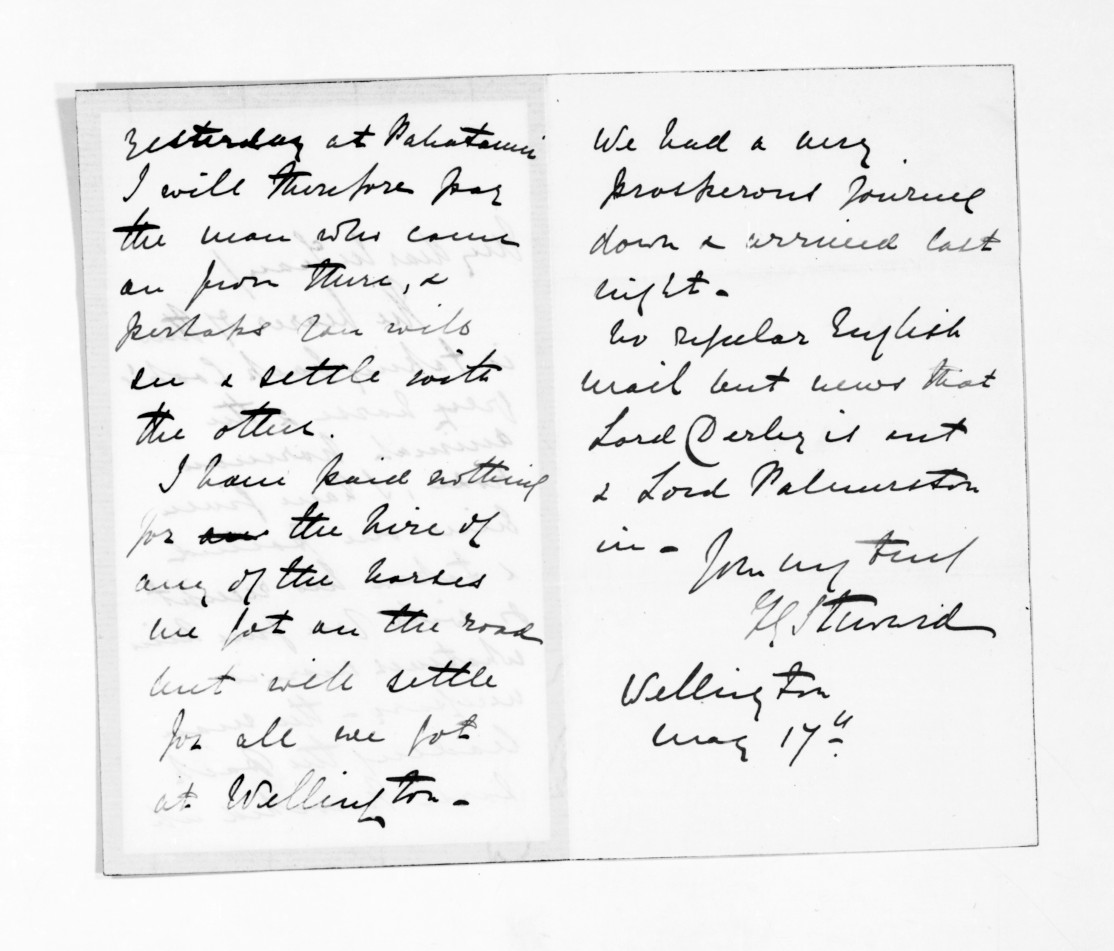 yesterday at Pahatanui
I will therefore pay
the man who came
on from there, &
perhaps you will
see & settle with
the other.
I have paid nothing
for the hire of
any of the horses
we got on the road
but will settle
for all we got
at Wellington -
We had a very
prosperous journey
down & arrived last
night -
No regular English
mail but news that
Lord Derby is out
& Lord Palmerston
in -
Yours my truly
Steward
Wellington
May 17th